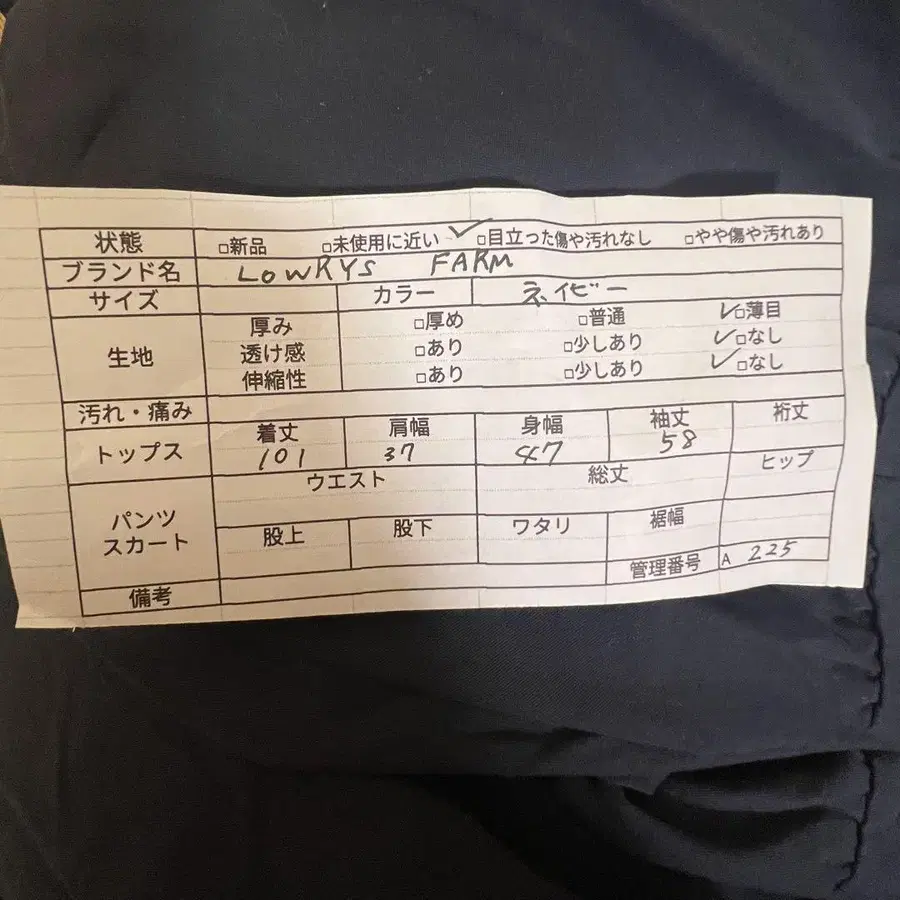 状態 □新品 □未使用に近い ✓□目立った傷や汚れなし □やや傷や汚れあり
ブランド名 LOWRYS FARM
サイズ カラー ネイビー
生地 厚み □厚め □普通 ✓□薄目
透け感 □あり □少しあり ✓□なし
伸縮性 □あり □少しあり ✓□なし
汚れ・痛み
トップス 着丈 肩幅 身幅 袖丈 裄丈
101 37 47 58
パンツ スカート ウエスト 総丈 ヒップ
股上 股下 ワタリ 裾幅
管理番号 A 225
備考